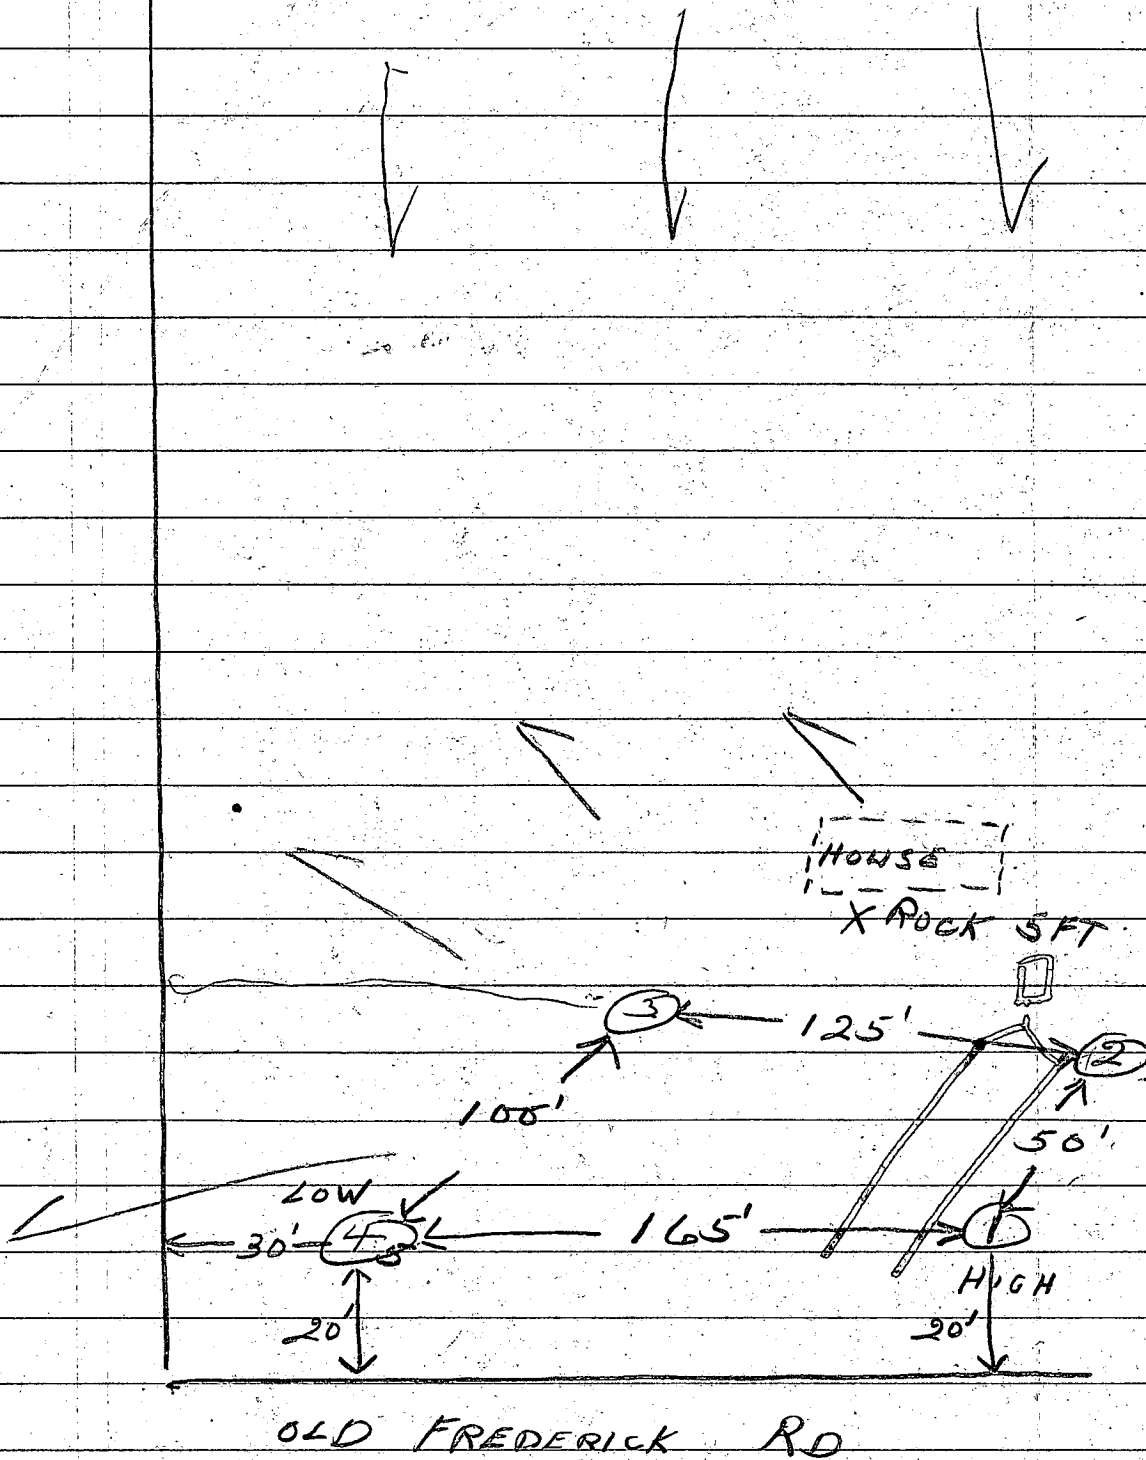 HOUSE
X ROCK 5FT
3 125' 2
100'
50'
LOW
30' 4 165' 1
HIGH
20' 20'
OLD FREDERICK RD